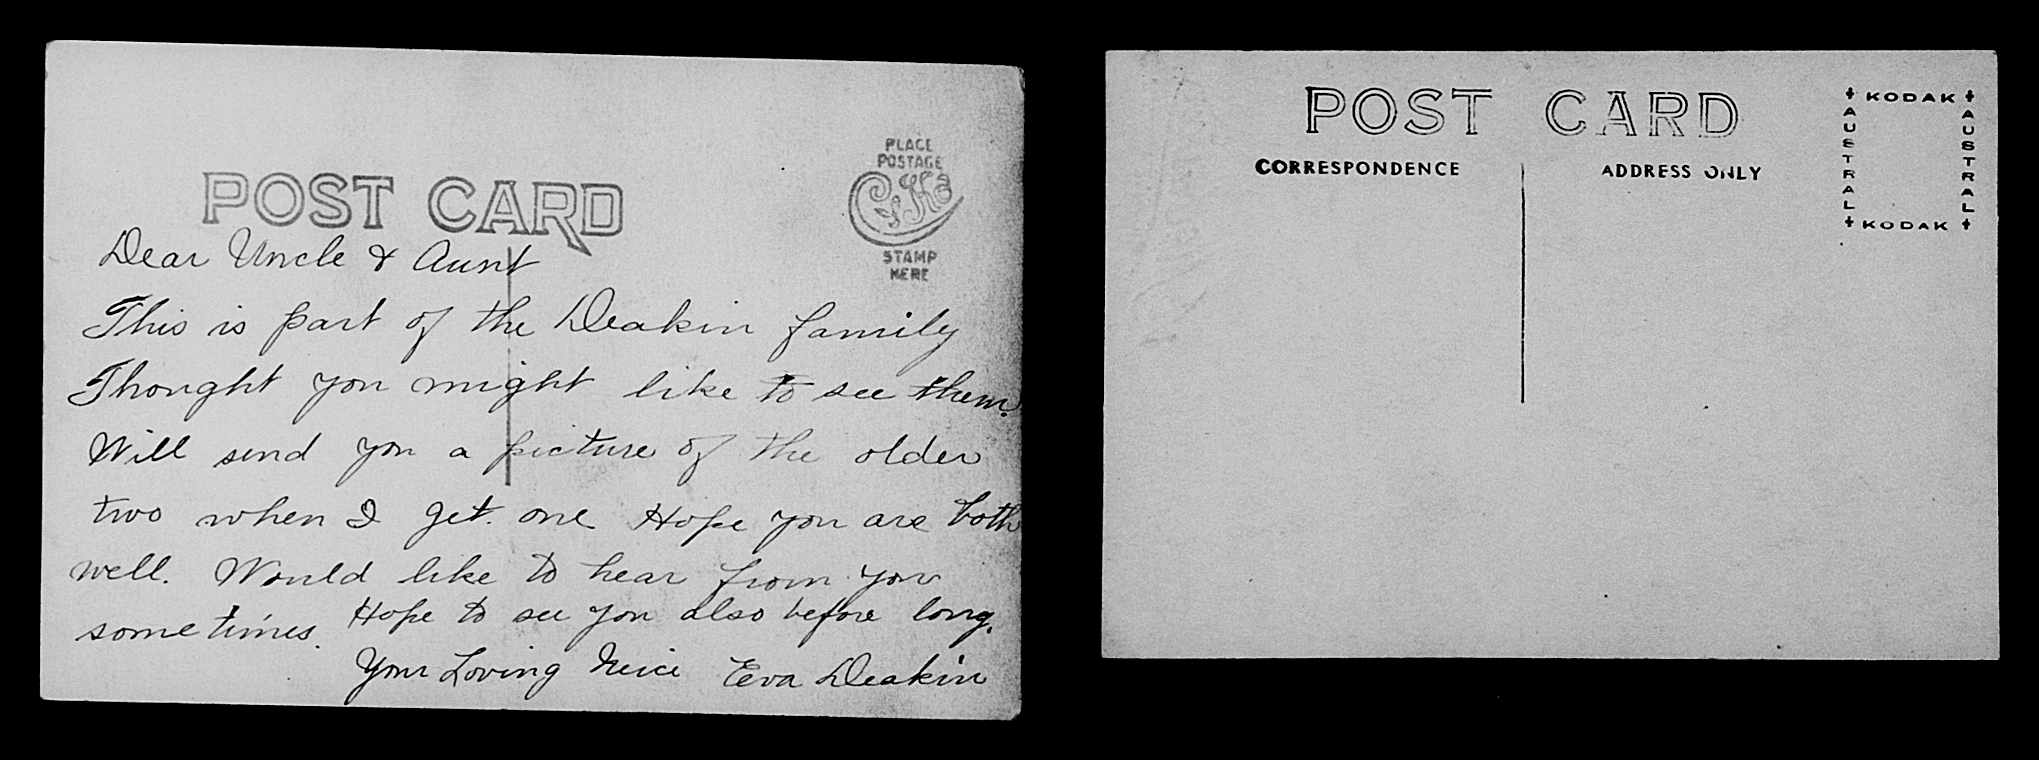 POST CARD
PLACE
POSTAGE
STAMP
HERE
Dear Uncle & Aunt
This is part of the Deakin family
Thought you might like to see them.
Will send you a picture of the older
two when I get one Hope you are both
well. Would like to hear from you
sometimes. Hope to see you also before long.
Your Loving Neice Eva Deakin
POST CARD
CORRESPONDENCE
ADDRESS ONLY
KODAK
AUSTRAL
AUSTRAL
KODAK